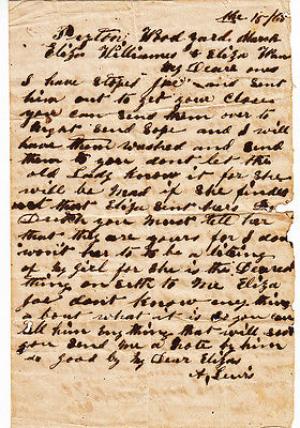 15/65
Peyton Wood yard. Marsh
Eliza Williames & Eliza
My Deare ones
I have stoped Joe and Sent
him out to get your Close
you can Send them over to
Night Send Sope and I will
have them washed and Send
them to you dont let the
old Lady Know it for She
will be mad if She findes
out that Eliza Sint hers By
you must tell her
that they are yours for I don
won't her to be a
of My Girl for She is the Dearest
thing on Earth to Me Eliza
Joe don't Know any thing
a bout what it is So you can
tell him any thing that will
you Send me a Note by him
So good by My Dear Elizas
A, Lewis